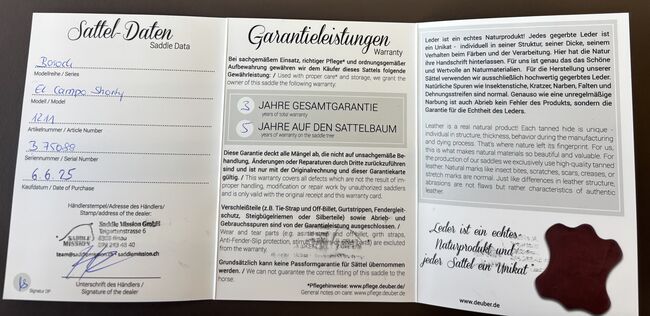 Sattel-Daten
Saddle Data
Barock
Modellreihe / Series
El Campo Shorty
Modell / Model
1211
Artikelnummer / Article Number
B 75088
Seriennummer / Serial Number
6.6.25
Kaufdatum / Date of Purchase
Händlerstempel/Adresse des Händlers/
Stamp/address of the dealer:
Saddle Mission GmbH
SADDLE
MISSION
team@saddlemission.ch
saddlemission.ch
Unterschrift des Händlers/
Signature of the dealer
Signatur DP
Garantieleistungen
Warranty
Bei sachgemäßem Einsatz, richtiger Pflege* und ordnungsgemäßer
Aufbewahrung gewähren wir dem Käufer dieses Sattels folgende
Gewährleistung: / Used with proper care* and storage, we grant the
owner of this saddle the following warranty.
3 JAHRE GESAMTGARANTIE
years of total warranty
5 JAHRE AUF DEN SATTELBAUM
years of warranty on the saddle tree
Diese Garantie deckt alle Mängel ab, die nicht auf unsachgemäße Be-
handlung, Änderungen oder Reparaturen durch Dritte zurückzuführen
sind und ist nur mit der Originalrechnung und dieser Garantiekarte
gültig. / This warranty covers all defects which are not the result of im-
proper handling, modification or repair work by unauthorized saddlers
and is only valid with the original receipt and this warranty card.
Verschleißteile (z.B. Tie-Strap und Off-Billet, Gurtstrippen, Fendergleich-
schutz, Steigbügelriemen oder Silberteile) sowie Abrieb- und
Gebrauchsspuren sind von der Garantieleistung ausgeschlossen. /
Wear and tear parts (e.g. as tie strap and off-billet, girth straps,
Anti-Fender-Slip protection, parts) are excluded
from the warranty.
Grundsätzlich kann keine Passformgarantie für Sättel übernommen
werden. / We can not guarantee the correct fitting of this saddle to the
horse.
*Pflegehinweise: www.pflege.deuber.de/
General notes on care: www.pflege.deuber.de/
Leder ist ein echtes Naturprodukt! Jedes gegerbte Leder ist
ein Unikat - individuell in seiner Struktur, seiner Dicke, seinem
Verhalten beim Färben und der Verarbeitung. Hier hat die Natur
ihre Handschrift hinterlassen. Für uns ist genau das das Schöne
und Wertvolle an Naturmaterialien. Für die Herstellung unserer
Sättel verwenden wir ausschließlich hochwertig gegerbtes Leder.
Natürliche Spuren wie Insektenstiche, Kratzer, Narben, Falten und
Dehnungsstreifen sind normal. Genauso wie eine unregelmäßige
Narbung ist auch Abrieb kein Fehler des Produkts, sondern die
Garantie für die Echtheit des Leders.
Leather is a real natural product! Each tanned hide is unique -
individual in structure, thickness, behavior during the manufacturing
and dyeing process. That's where nature left its fingerprint. For us,
this is what makes natural materials so beautiful and valuable. For
the production of our saddles we exclusively use high-quality tanned
leather. Natural marks like insect bites, scratches, scars, creases, or
stretch marks are normal. Just like differences in leather structure,
abrasions are not flaws but rather characteristics of authentic
leather.
Leder ist ein echtes
Naturprodukt und
jeder Sattel ein Unikat
www.deuber.de